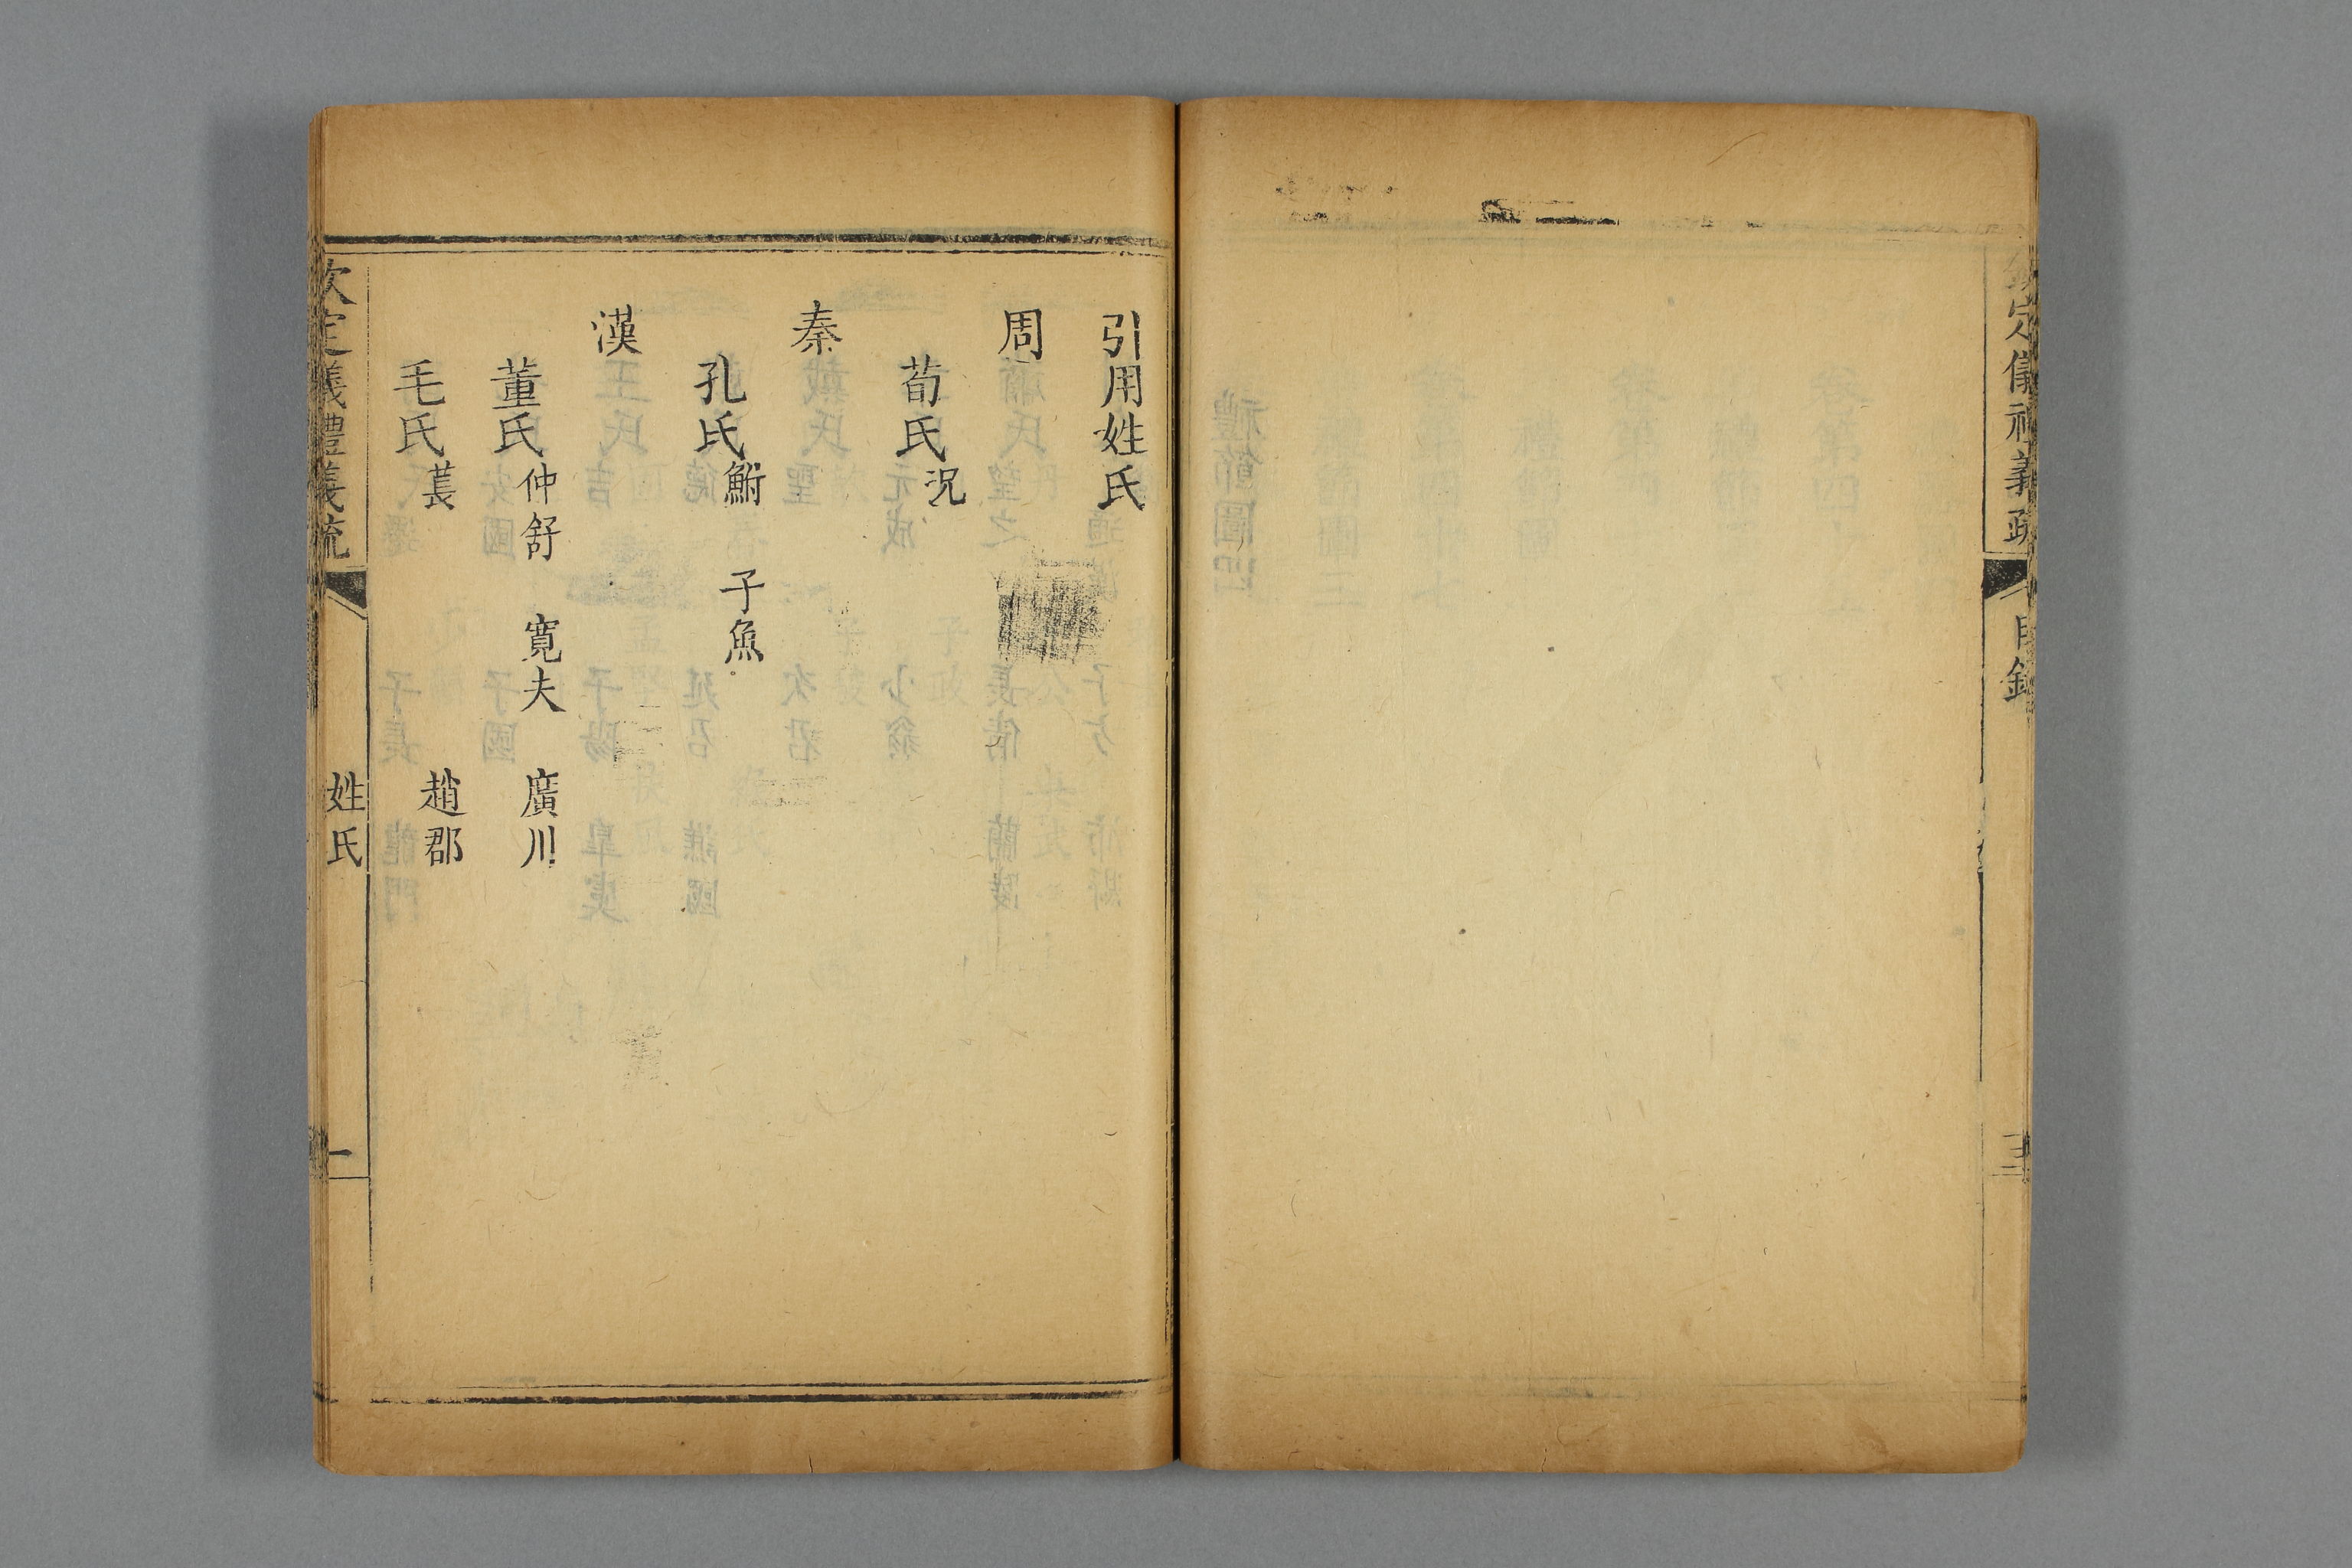 欽定儀禮義疏 目錄
引用姓氏
周
荀氏況
秦
孔氏鮒 子魚
漢
董氏仲舒 寬夫 廣川
毛氏萇 趙郡
欽定義禮義疏 姓氏 一